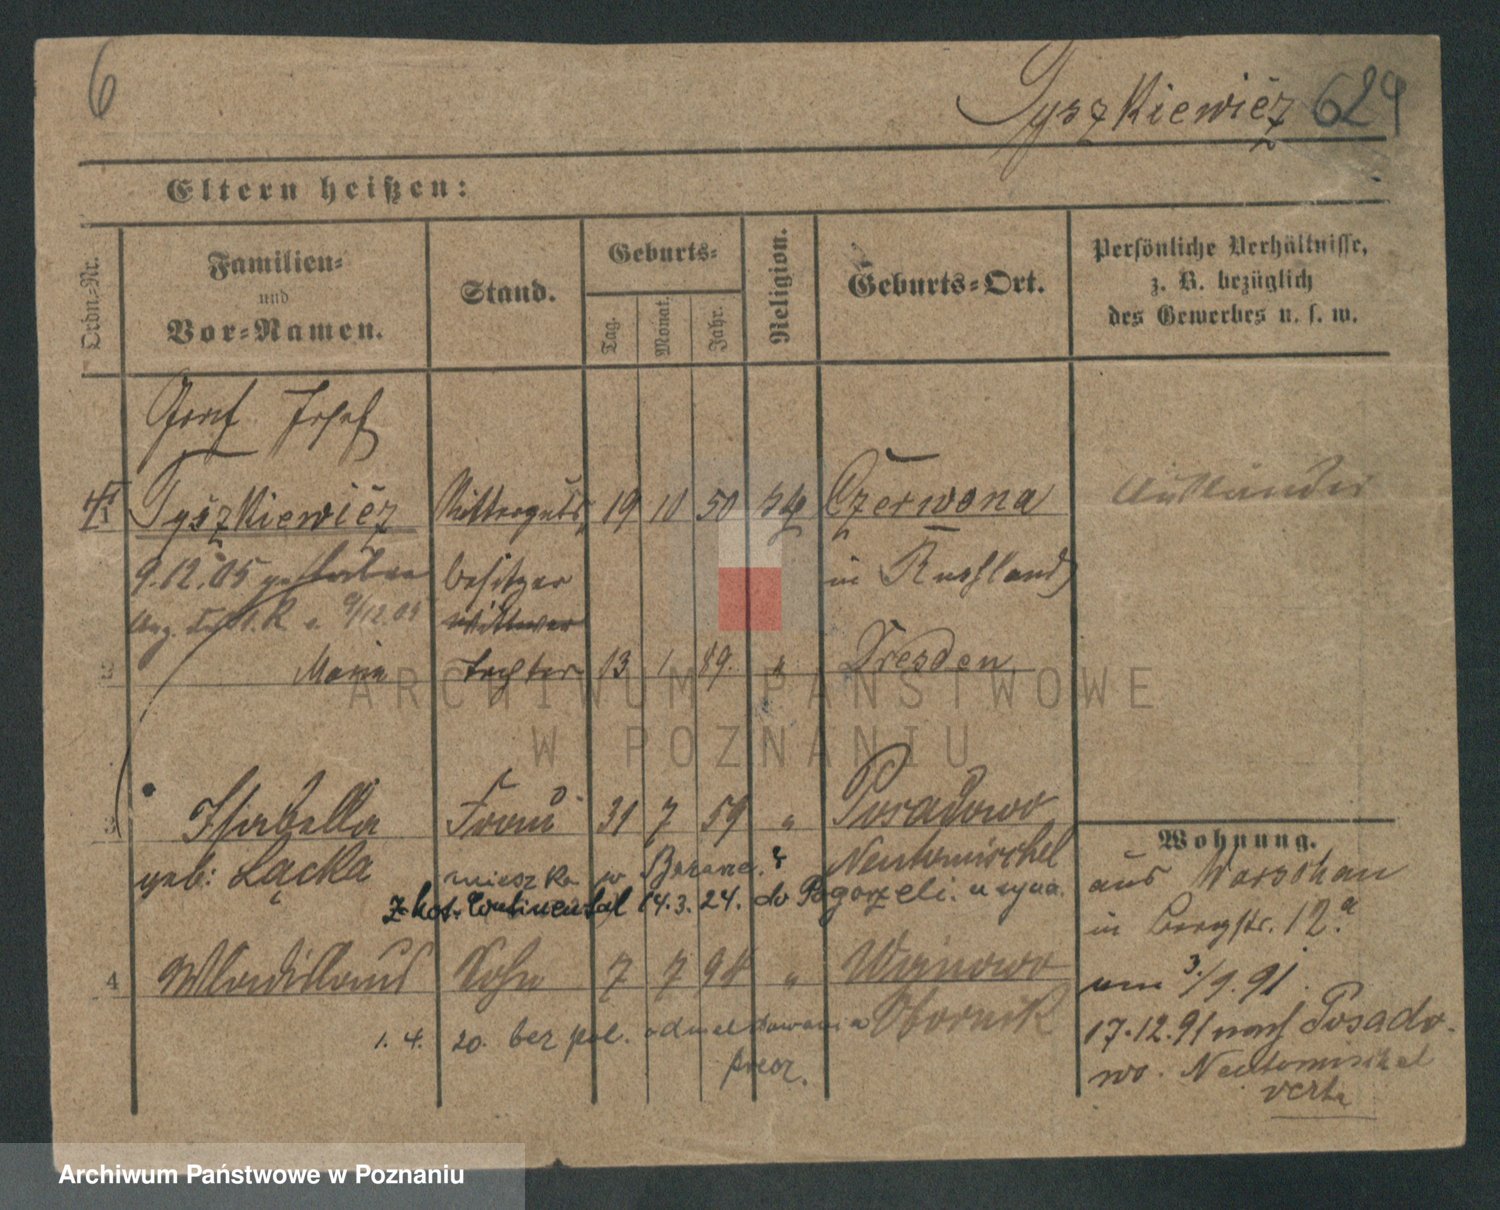 6
Tyszkiewicz 624
Eltern heißen:
Ordn.-Nr.
Familien- und Vor-Namen.
Stand.
Geburts-
Tag.
Monat.
Jahr.
Religion.
Geburts-Ort.
Persönliche Verhältnisse, z. B. bezüglich des Gewerbes u. s. w.
Graf Josef
1 Tyszkiewicz Ritterguts 19 10 50 kth Czerwona Ausländer
9.12.05 gestorben besitzer in Russland
9/12.05 Wittwer
2 Marie Tochter 13 1 89. " Dresden
3 Isabella Frau 31 7 59 " Posadowo
Wohnung.
geb: Łącka Neutomischel aus Warschau
mieszka w
z hot. Continental 14.3.24. do Pogorzeli. u syna.
in Bergstr. 12a
4 Wladislaus Sohn 7 7 98 " Wojnowo
um 3./9.91.
1. 4. 20. bez pol. odmeldowania Obornik
17.12.91 nach Posado-
wo. Neutomischel
verte
Archiwum Państwowe w Poznaniu
ARCHIWUM PAŃSTWOWE
W POZNANIU